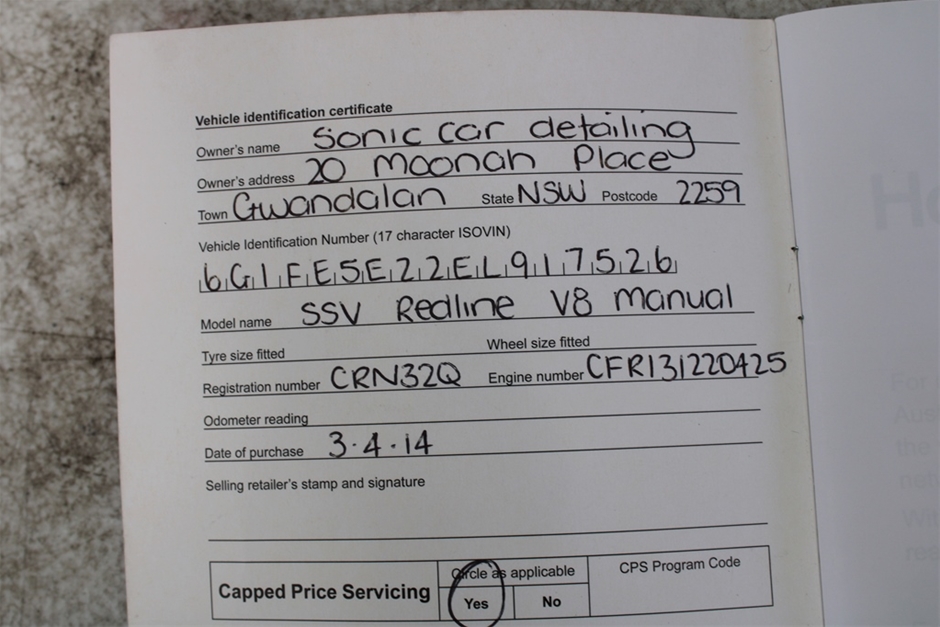 Vehicle identification certificate
Owner's name Sonic Car detailing
Owner's address 20 Moonah Place
Town Gwandalan State NSW Postcode 2259
Vehicle Identification Number (17 character ISOVIN)
6G1FE5E22EL917526
Model name SSV Redline V8 manual
Tyre size fitted Wheel size fitted
Registration number CRN32Q Engine number CFR131220425
Odometer reading
Date of purchase 3.4.14
Selling retailer's stamp and signature
Capped Price Servicing Circle as applicable CPS Program Code
Yes No